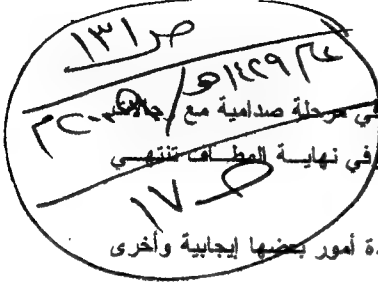 ص ١٣١
١٤٢٩هـ /
في مرحلة صدامية مع
وفي نهاية المطاف تنتهي
ص ١٧
أمور بعضها إيجابية وأخرى